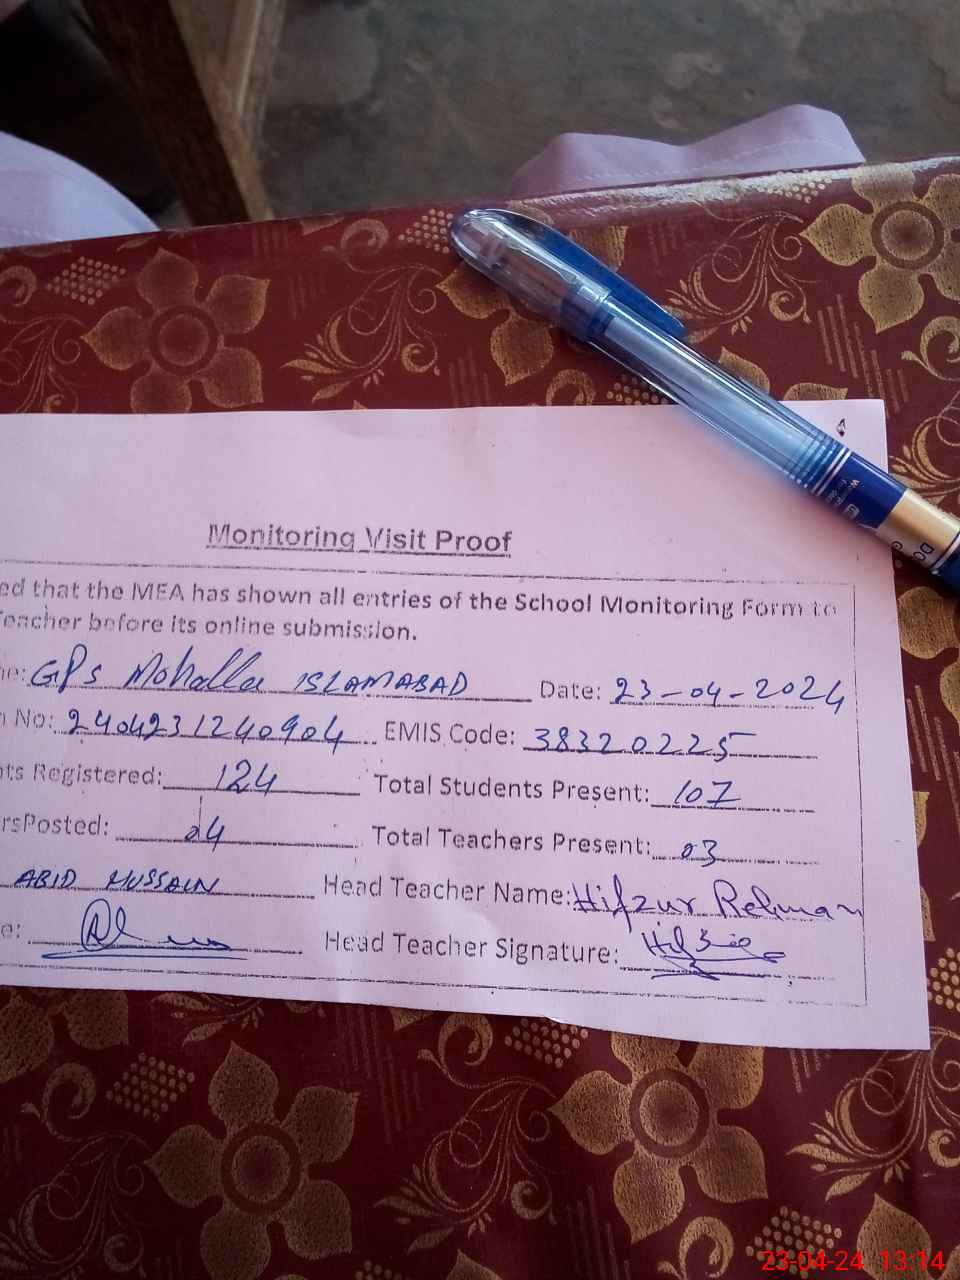 Monitoring Visit Proof
ed that the MEA has shown all entries of the School Monitoring Form to
Teacher before its online submission.
ne: GPS Mohalla ISLAMABAD Date: 23-04-2024
n No: 2404231240904 EMIS Code: 38320225
nts Registered: 124 Total Students Present: 107
rsPosted: 04 Total Teachers Present: 03
ABID HUSSAIN Head Teacher Name: Hifzur Rehman
e: Head Teacher Signature:
23-04-24 13:14